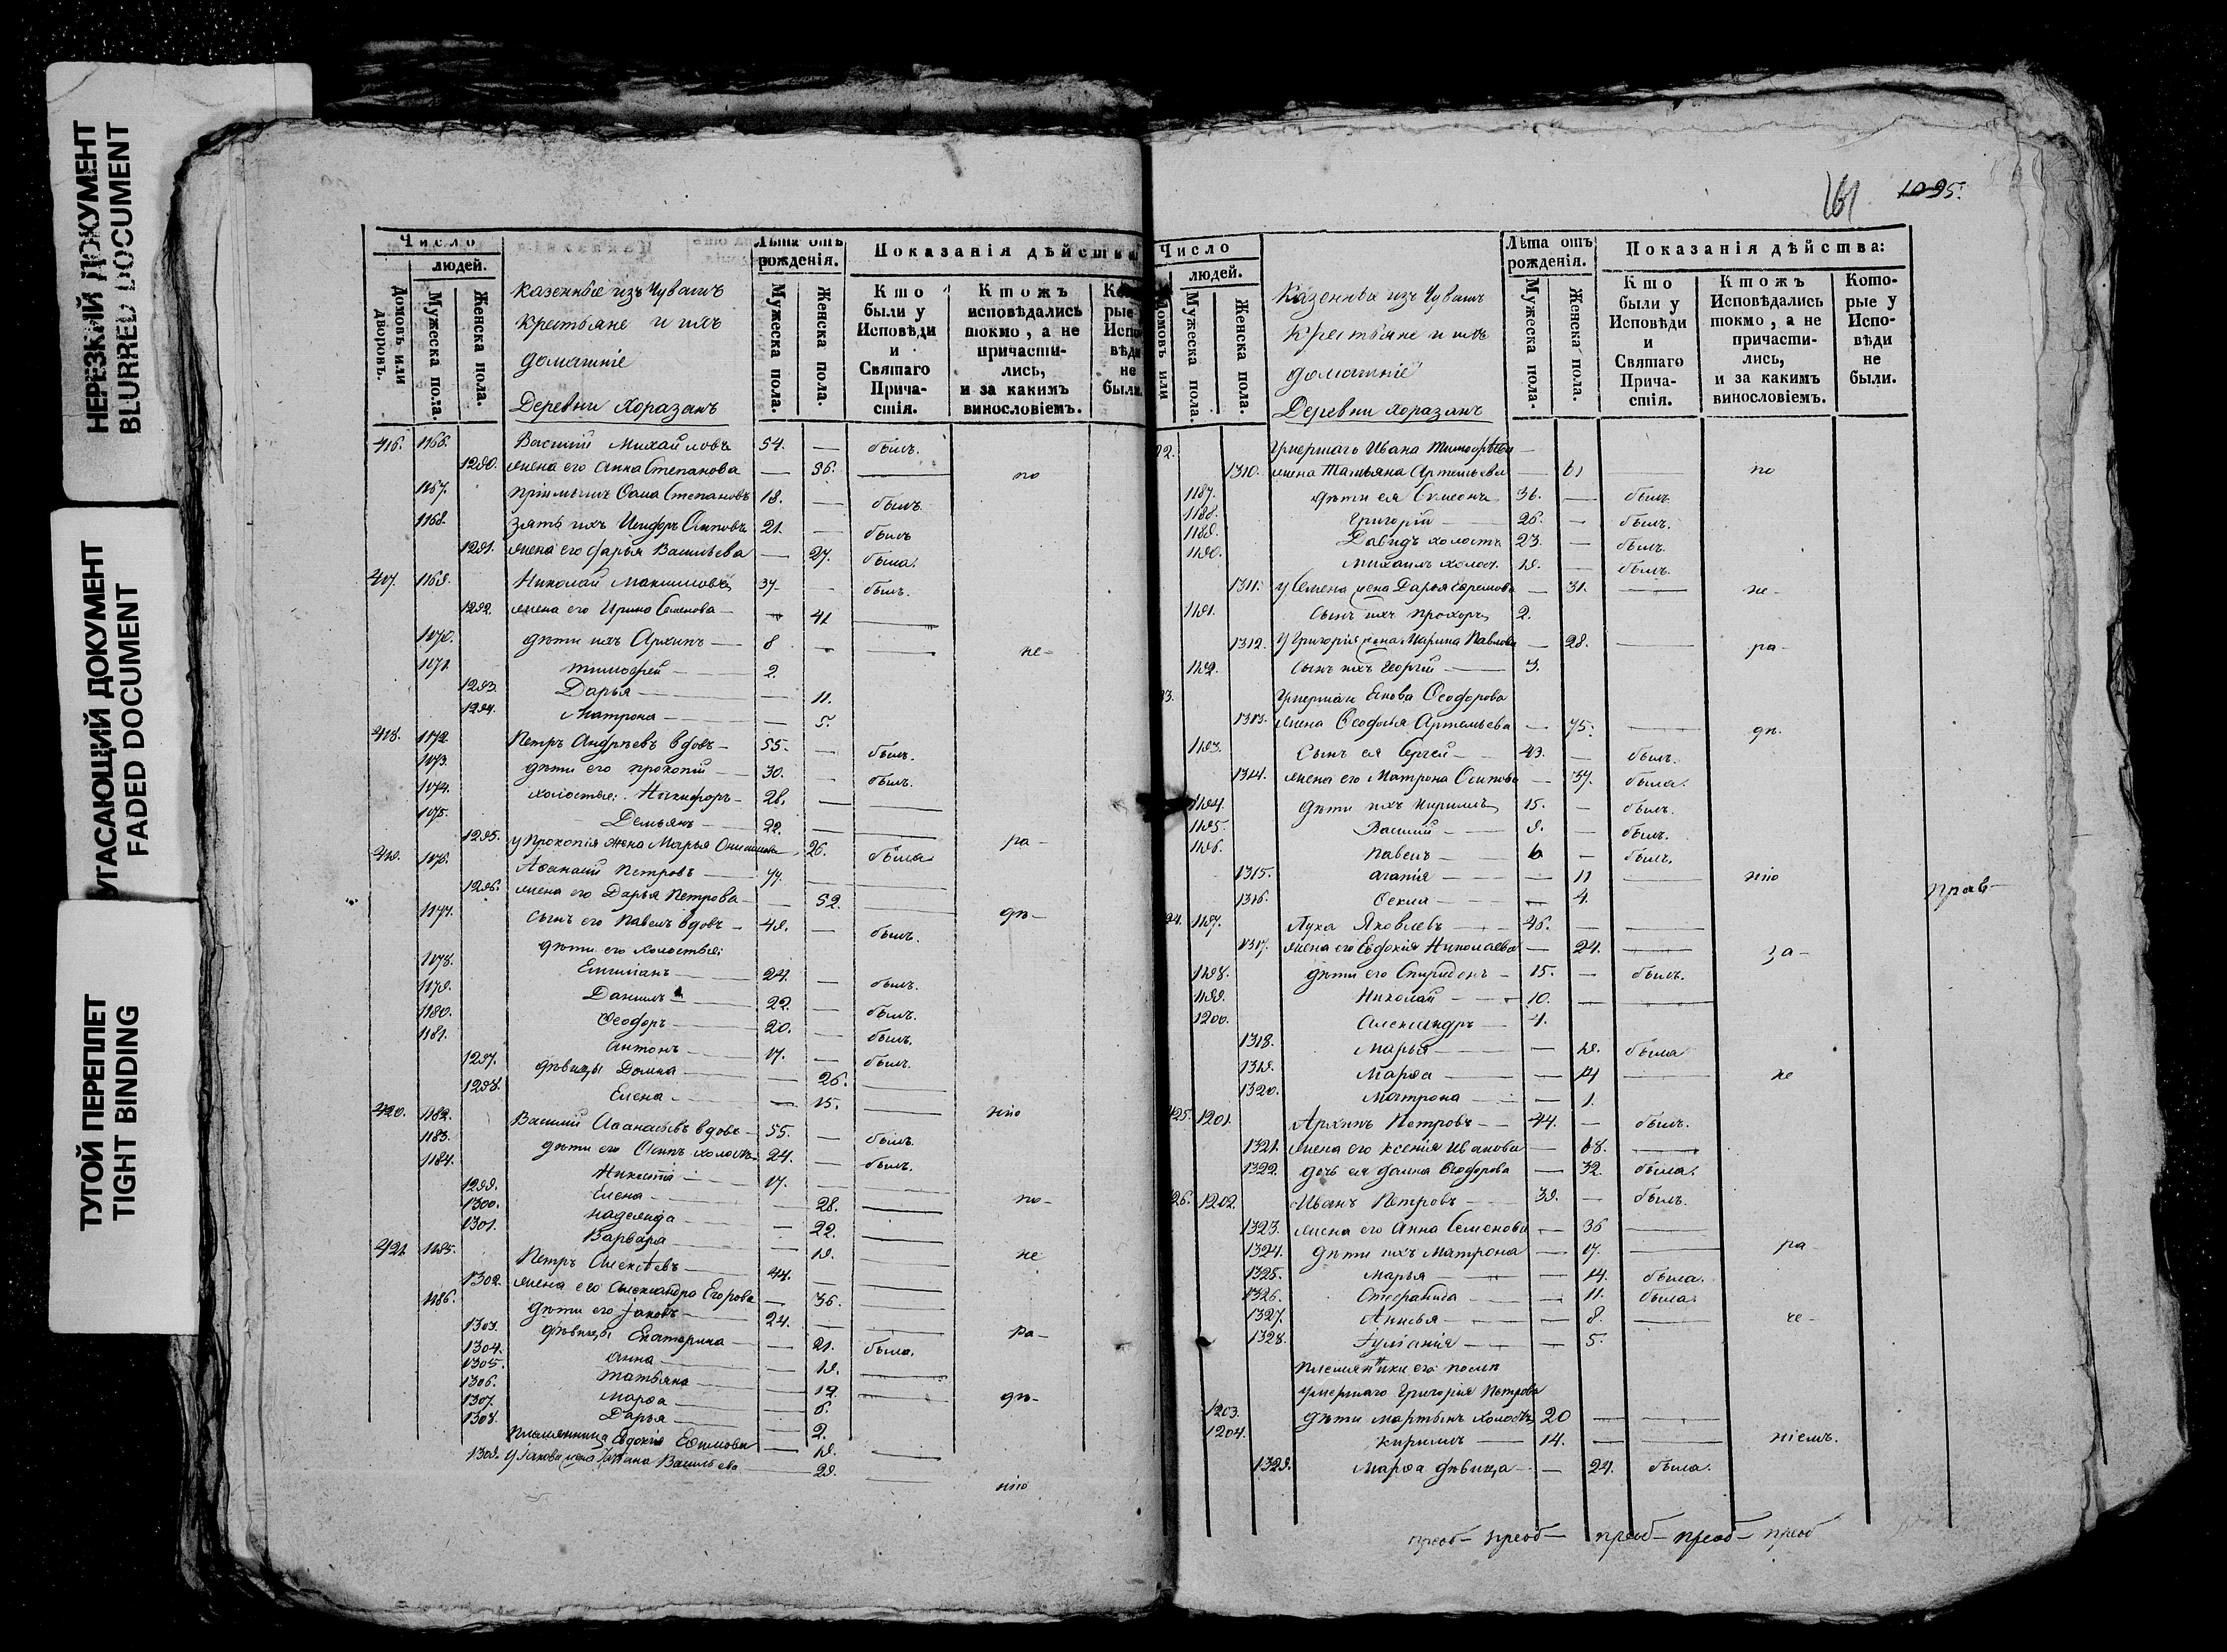 НЕРЕЗКИЙ ДОКУМЕНТ
BLURRED DOCUMENT
УГАСАЮЩИЙ ДОКУМЕНТ
FADED DOCUMENT
ТУГОЙ ПЕРЕПЛЕТ
TIGHT BINDING
Число
людей.
Домовъ или дворовъ.
Мужеска пола.
Женска пола.
Казенные изъ Чувашъ
Крестьяне и ихъ
домашніе
Деревни Хоразанъ
Лѣта отъ рожденія.
Мужеска пола.
Женска пола.
Показанія дѣйства
Кто были у Исповѣди и Святаго Причастія.
Ктожъ исповѣдались токмо, а не причастились, и за какимъ винословіемъ.
рые не были.
416. 1166. Василій Михайловъ 54. — былъ.
1290. жена его Анна Степанова — 36. — по
1167. пріимышъ Сава Степановъ 18. — былъ
1168. зять ихъ Никифоръ Осиповъ 21. — былъ
1291. жена его Дарья Васильева — 27. была.
417. 1169. Николай Максимовъ 37. — былъ.
1292. жена его Ирина Семенова — 41 —
1170. дѣти ихъ Архипъ — 8 — — не-
1171. Тимофей — 2.
1293. Дарья — — 11.
1294. Матрона — — 5.
418. 1172. Петръ Андреевъ вдовъ — 55. — былъ.
1173. дѣти его Прокопій — 30. — былъ.
1174. холостые: Никифоръ — 26. — —
1175. Демьянъ — 22. — —
1295. у Прокопія жена Марья — 26. была ра-
419. 1176. Афанасій Петровъ — 77. —
1296. жена его Дарья Петрова — 52. — дѣ-
1177. сынъ его Павелъ вдовъ — 49. — былъ.
дѣти его холостые:
1178. Емиліанъ — 24. — былъ.
1179. Даніилъ — 22. — былъ.
1180. Феодоръ — 20. — былъ.
1181. Антонъ — 17. — былъ.
1297. дѣвицы Домна — — 26. —
1298. Елена — — 15. — ніе
420. 1182. Василій Афанасьевъ вдовъ — 55. — былъ.
1183. дѣти его Осипъ холостъ 24. — былъ.
1184. Никита — 17. —
1299. Елена — — 28. — по-
1300. Надежда — — 22. —
1301. Варвара — — 19. — не
421. 1185. Петръ Алексѣевъ — 44. —
1302. жена его Александра Егорова — 36. —
1186. дѣти его Яковъ — 24. —
1303. дѣвицы Екатерина — — 21. была. ра-
1304. Анна — — 19. —
1305. Татьяна — — 12. — дѣ-
1306. Марфа — — 6.
1307. Дарья — — 2.
1308. племянница Евдокія Ефимова — 19. —
1309. у Якова жена Васильева — 29. — ніе
161 1095.
Число
людей.
Домовъ или
Мужеска пола.
Женска пола.
Казенные изъ Чувашъ
Крестьяне и ихъ
домашніе
Деревни Хоразанъ
Лѣта отъ рожденія.
Мужеска пола.
Женска пола.
Показанія дѣйства:
Кто были у Исповѣди и Святаго Причастія.
Ктожъ Исповѣдались токмо, а не причастились, и за какимъ винословіемъ.
Которые у Исповѣди не были.
22. Умершаго Ивана Тимофѣева —
1310. жена Татьяна Артемьева — 61 — по
1187. дѣти ея Симеонъ 36. — былъ.
1188. Григорій — 26. — былъ.
1189. Давидъ холостъ 23. — былъ.
1190. Михаилъ холос. 19. — былъ.
1311. у Семена жена Дарья Ефремова — 31. — не-
1191. сынъ ихъ Прохоръ 2.
1312. у Григорія жена Марина Павлова — 28. — ра-
1192. сынъ ихъ Георгій — 3.
23. Умершаго Якова Феодорова
1313. жена Феодосья Артемьева — 75. — дѣ.
1193. Сынъ ея Сергей — 43. — былъ.
1314. жена его Матрона Осипова — 37. была.
1194. дѣти ихъ Кирилъ 15. — былъ.
1195. Василій — 9. — былъ.
1196. Павелъ — 6 — былъ.
1315. Агапія — — 11 — ніе
1316. Фекла — — 4.
24. 1197. Лука Яковлевъ — 46. — —
1317. жена его Евдокія Николаева — 24. — за-
1198. дѣти его Спиридонъ — 15. — былъ.
1199. Николай — 10. — —
1200. Александръ — 4.
1318. Марья — — 19. была
1319. Марфа — — 14 — не
1320. Матрона — — 1.
425. 1201. Архипъ Петровъ — 44. — былъ.
1321. жена его Ксенія Иванова — 68. —
1322. дочь ея Домна Феодорова — 32. была.
26. 1202. Иванъ Петровъ — 39. — былъ.
1323. жена его Анна Семенова — 36 —
1324. дѣти ихъ Матрона — 17. — ра-
1325. Марья — — 14. была.
1326. Стефанида — — 11. была.
1327. Анисья — — 8. — че-
1328. Іуліанія — — 5.
племянники его послѣ
умершаго Григорія Петрова
1203. дѣти Мартынъ холостъ 20 — —
1204. Кирилъ — 14. — — ніемъ.
1329. Марфа дѣвица — — 24. была.
прав-
преоб- преоб- преоб- преоб- преоб